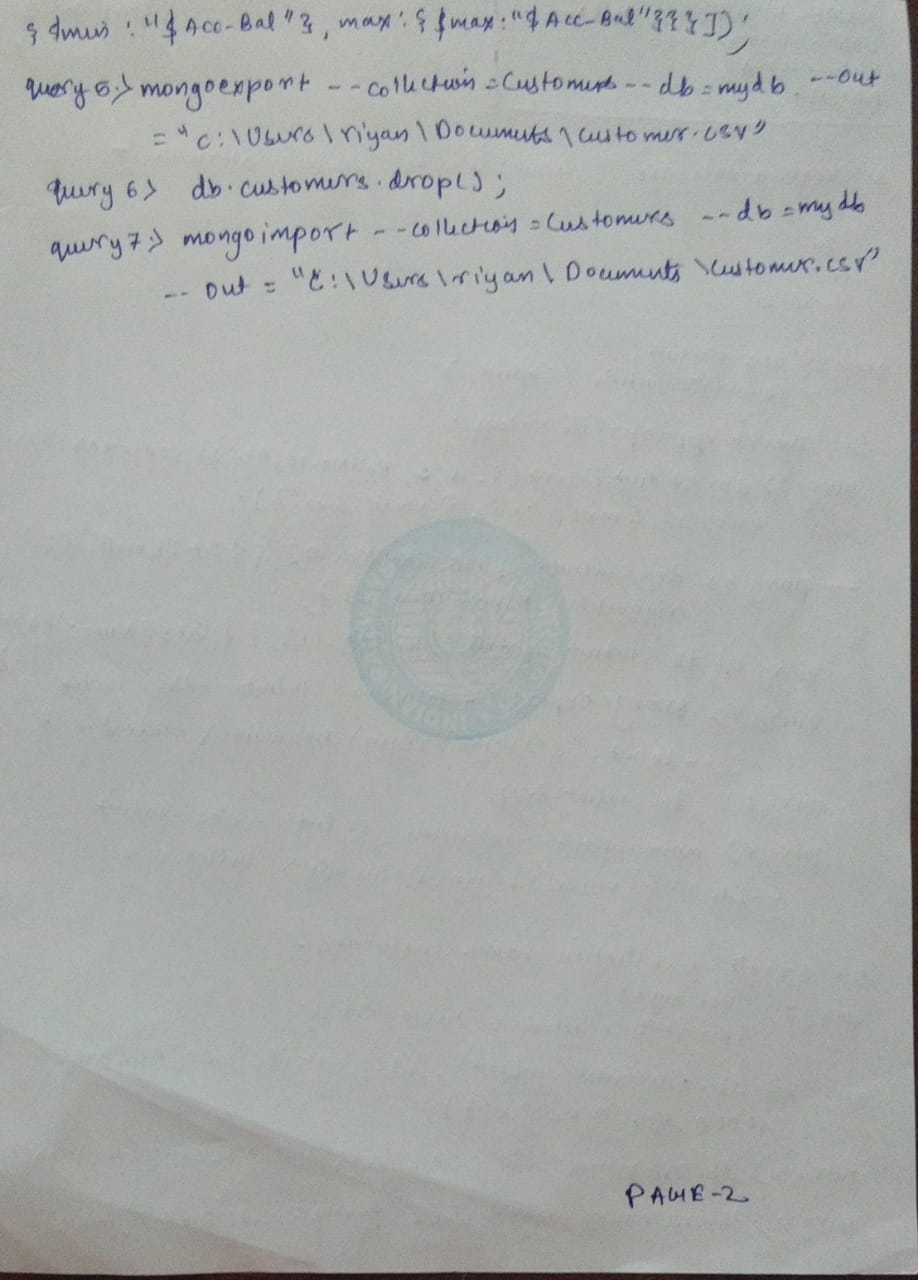 { $min : "$ Acc-Bal" }, max : { $max : "$ Acc-Bal" }}} ]);
query 5:> mongoexport --collection=Customers --db=mydb --out
= "C:\Users\riyan\Documents\customer.csv"
query 6> db.customers.drop();
query 7:> mongoimport --collection=Customers --db=mydb
-- out = "C:\Users\riyan\Documents\customer.csv"
INDIA
PAGE-2